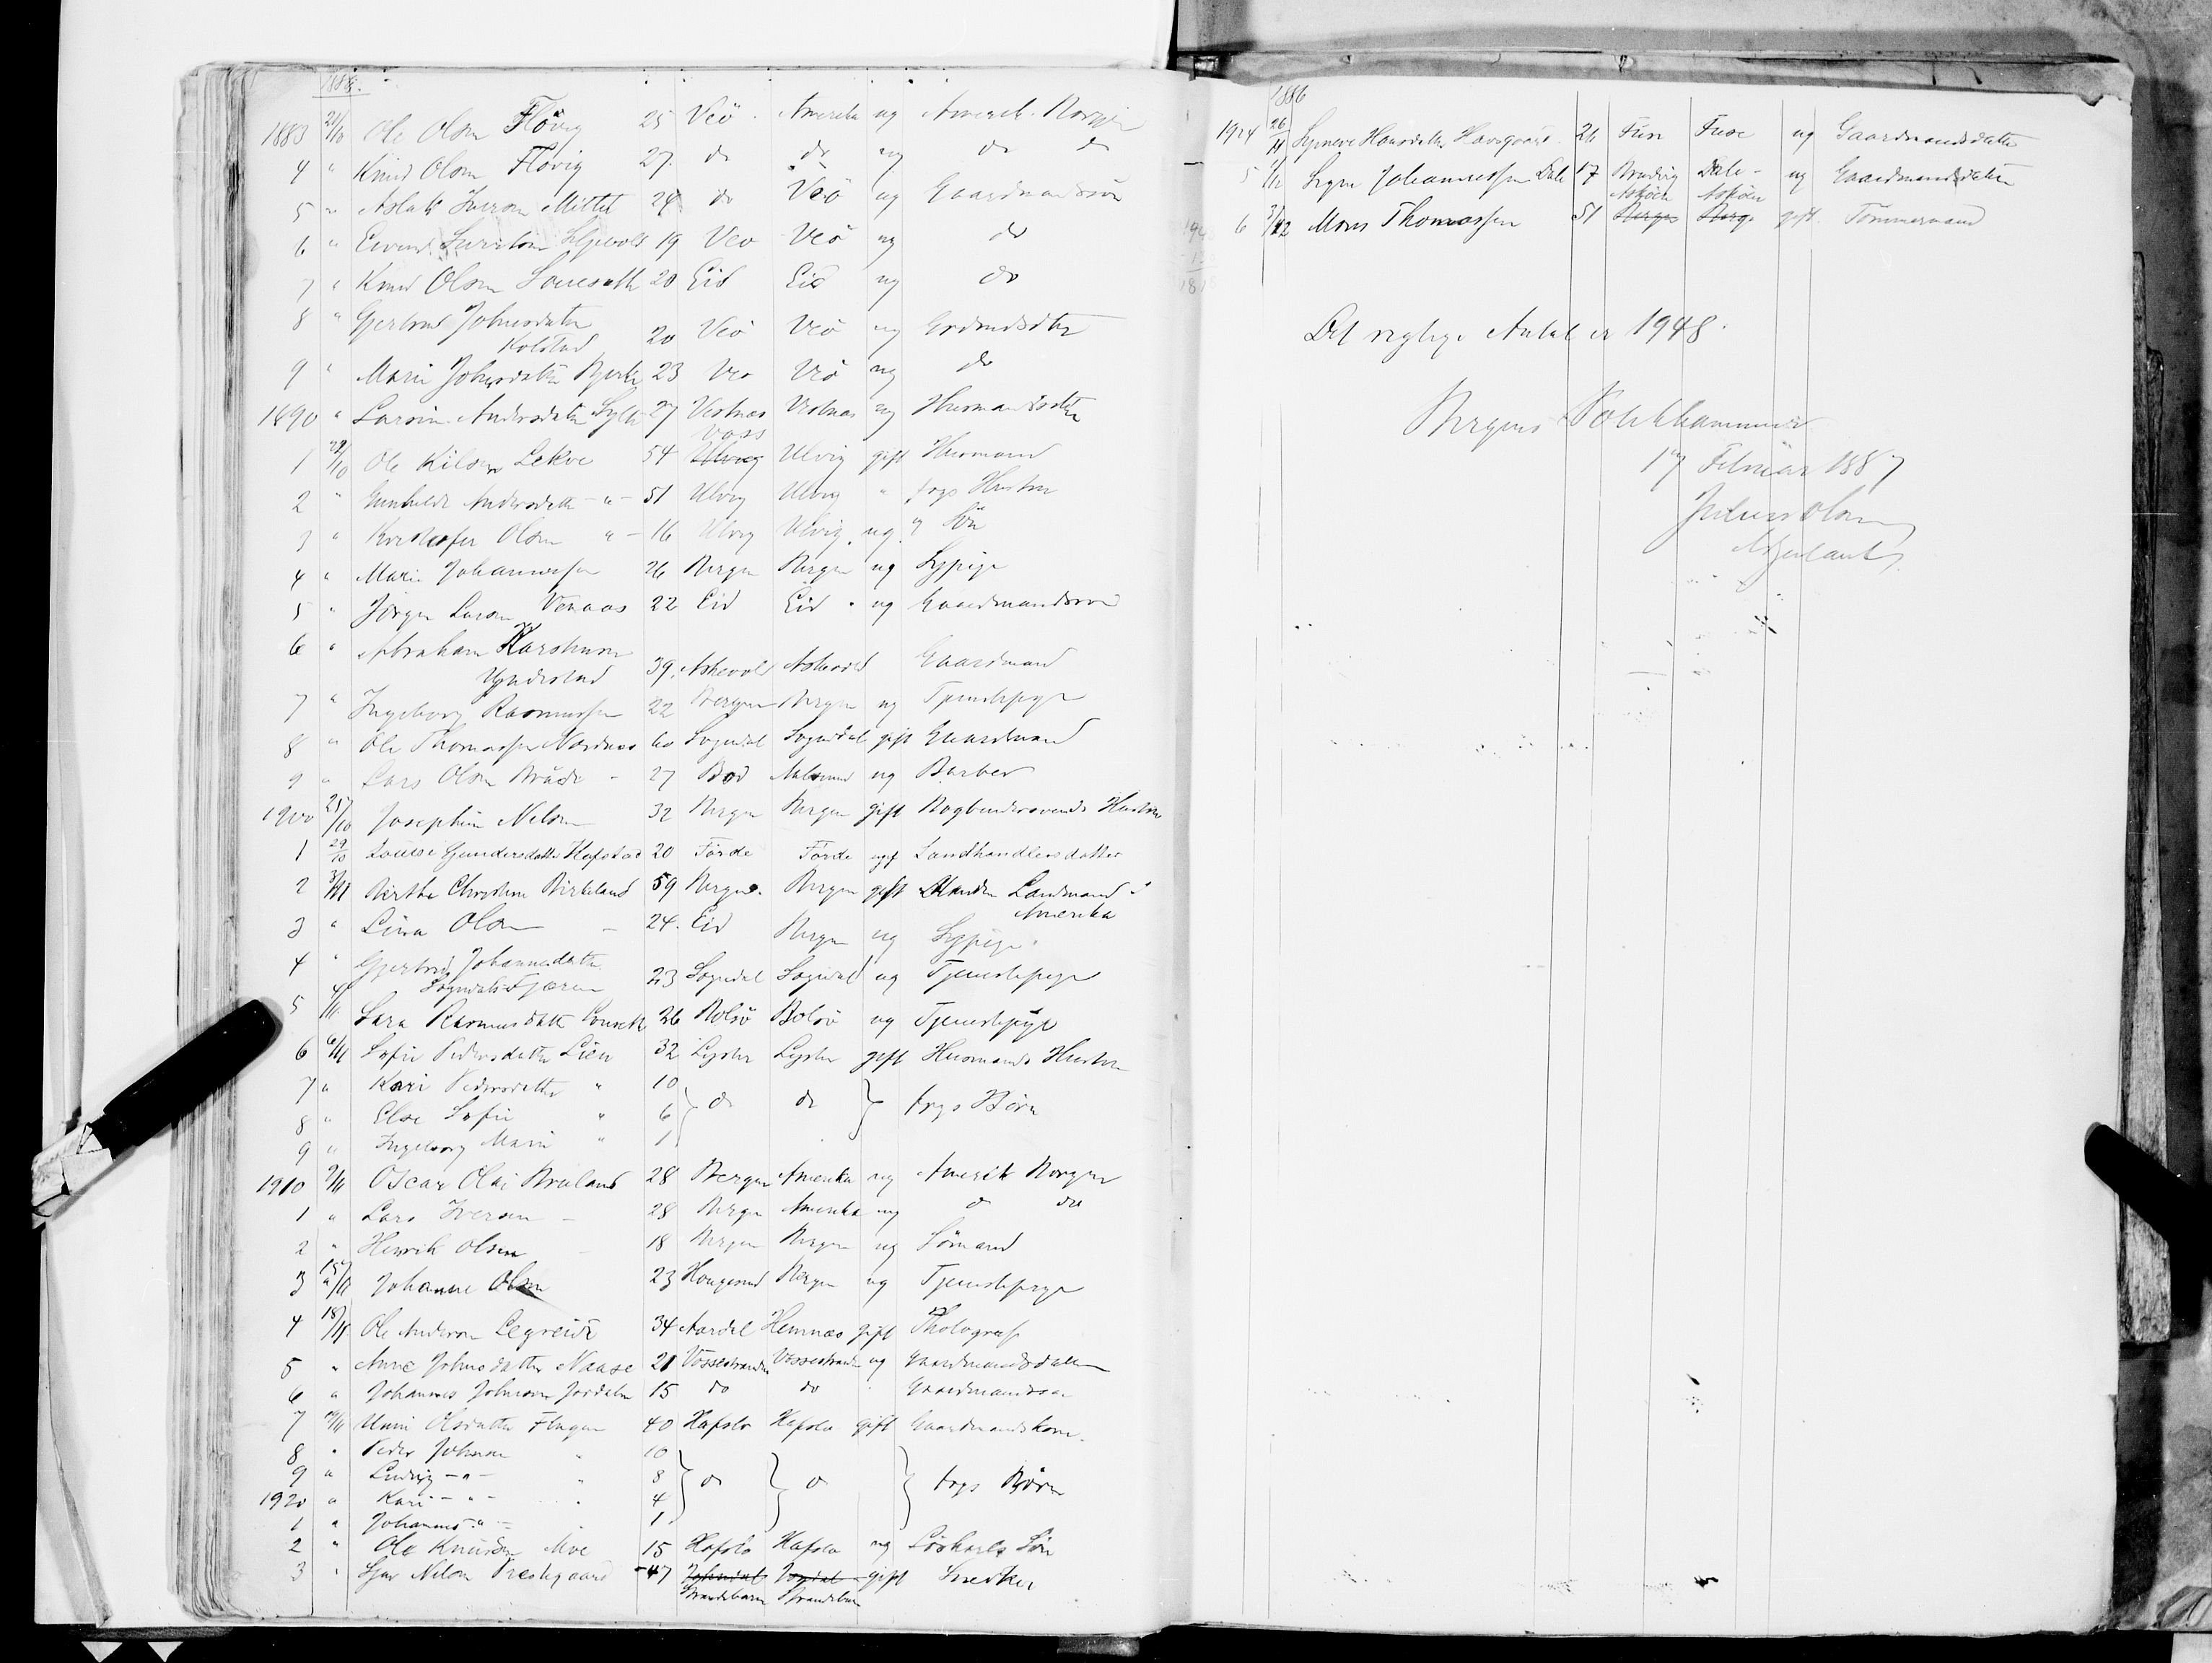 1886.
1883 21/10 Ole Olsen Flövig 25 Veö Amerika ug Amerik. Norger
4 " Knud Olsen Flövig 27 do do ug do do
5 " Aslak Iverson Mittet 24 do Veö ug Gaardmandssön
6 " Eivind 19 Veö Veö ug do
7 " Knud Olsen 20 Eid Eid ug do
8 " Gjertrud Johnsdatter
Kolstad 20 Veö Veö ug
9 " Marie Johnsdatter Bjerke 23 Veö Veö ug do
1890 " Andersdatter Sylte 27 Vestnæs Vestnæs ug Husmandsdtr
Voss
1 22/10 Ole Kilsen Lekve 54 Ulvig Ulvig gift Husmand
2 " Gunhilde Andersdtr - " - 51 Ulvig Ulvig " frgs Hustru
3 " Kristofer Olsen " - 16 Ulvig Ulvig ug " Sön
4 " Marie Johannessen 26 Bergen Bergen ug Sypige
5 " Jörgen Larsen Venaas 22 Eid Eid ug Gaardmandssön
6 " Abraham Karstensen
Yndestad 39 Askevold Askevold Gaardmand
7 " Ingeborg Rasmussen 22 Bergen Bergen ug Tjenestepige
8 " Ole Thomassen Nordnæs 60 Sogndal Sogndal gift Gaardmand
9 " Lars Olsen 27 Bod Aalesund ug Barber
1900 25/10 Josephine Nilsen 32 Bergen Bergen gift Bogbindersvends Hustru
1 29/10 Louise Gundersdatter Hafstad 20 Förde Förde ugf Landhandlersdatter
2 3/11 Birthe Christine Birkeland 59 Bergen Bergen gift Manden Landmand i
Amerika
3 " Lina Olsen 24 Eid Bergen ug Sypige
4 " Gjertrud Johannesdatter
Sogndals-Fjæren 23 Sogndal Sogndal ug Tjenestepige
5 4/11 Sara Rasmusdatter 26 Bolsö Bolsö ug Tjenestepige
6 6/11 Sofie Pedersdatter Lien 32 Lyster Lyster gift Husmands Hustru
7 " Kari Pedersdatter " 10
8 " Else Sofie " 6 do do frgs Börn
9 " Ingeborg Marie " 1
1910 9/11 Oscar Olai Bruland 28 Bergen Amerika ug Amerik Norger
1 " Lars Iversen - 28 Bergen Amerika ug do do
2 " Henrik Olsen 18 Bergen Bergen ug Sömand
3 15/11 Johanne Olsen 23 Haugesund Bergen ug Tjenestepige
4 18/11 Ole Anderson Legreide 34 Aardal Hemnæs gift Photograf
5 " Anne Johnsdatter Naase 21 Vossestranden Vossestranden ug Gaardmandsdatter
6 " Johannes Johnsen Jordalen 15 do do Gaardmandssön
7 Unni Olsdatter Flugen 40 Hafslo Hafslo gift Gaardmandskone
8 " Peder Johnsen " 10
9 " Ludvig - " - " 8 do do frgs Börn
1920 " Kari - " - " 4
1 " Johannes - " - 1
2 " Ole Knudsen Moe 15 Hafslo Hafslo ug Löskarls Sön
3 " Nilsen Prestegaard 47 Jondal Jondal gift Snedker
Strandebarm Strandebarm
1886
1924 26/11 Synneve Hansdatter Havsgaard 26 Fuse Fuse ug Gaardmandsdatter
5 1/12 Signe Johannessen Dale 17 Bruvig Dale - ug Gaardmandsdatter
Askøen Askøen
6 3/12 Mons Thomassen 51 Bergen Berge gift Tömmermand
Det rigtige Antal er 1948.
Bergens Politikammer
17 Februar 1887
Julius Olsen